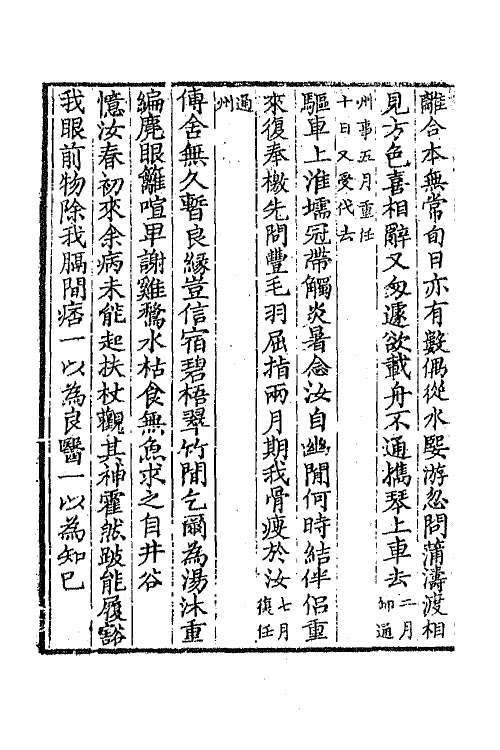 離合本無常旬日亦有數偶從水墅游忽問蒲濤渡相
見方色喜相辭又匆遽欲載舟不通攜琴上車去二月卸通
州事五月重任十日又受代去
驅車上淮壖冠帶觸炎暑念汝自幽閒何時結伴侶重
來復奉檄先問豐毛羽屈指兩月期我骨瘦於汝七月復任
通州
傳舍無久暫良緣豈信宿碧梧翠竹間乞爾為湯沐重
編麂眼籬喧卑謝雞鶩水枯食無魚求之自井谷
憶汝春初來余病未能起扶杖觀其神霍然跛能履豁
我眼前物除我膈間痞一以為良醫一以為知己